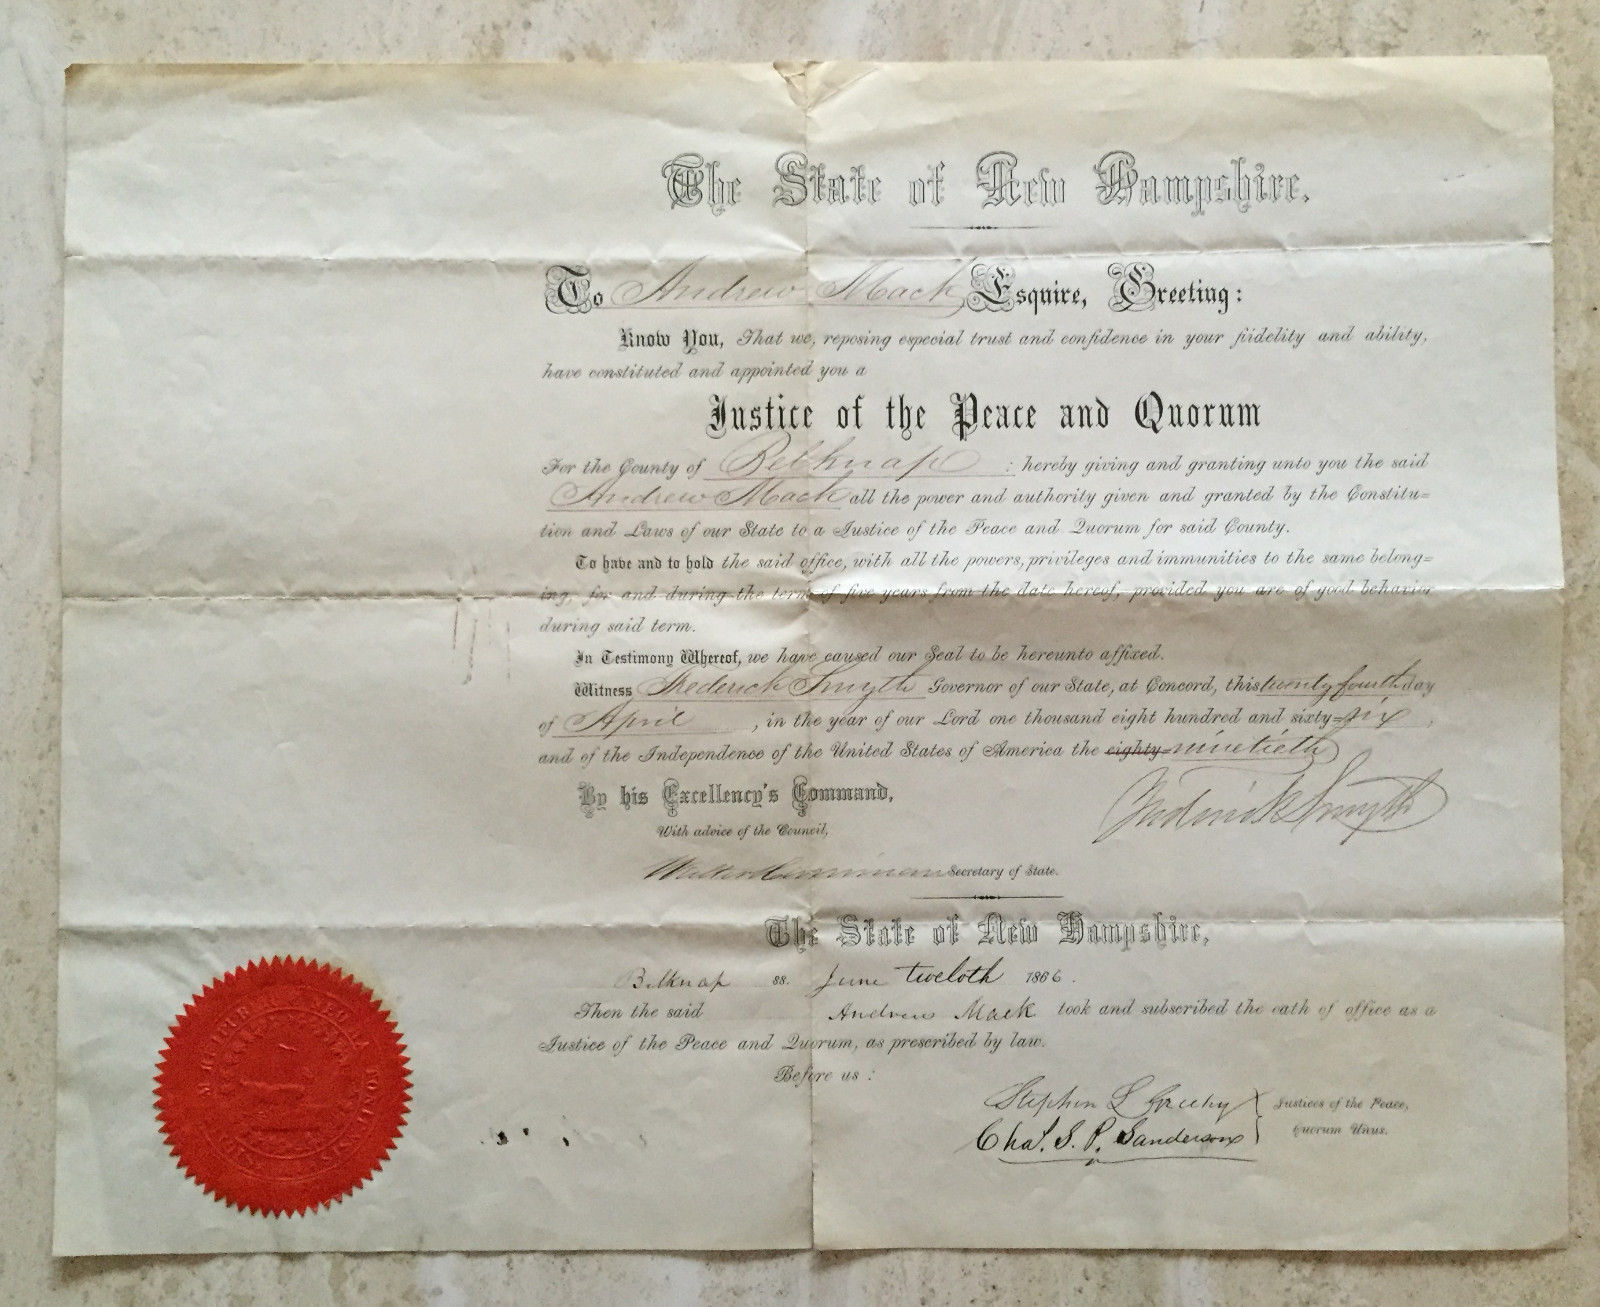 The State of New Hampshire.
To Andrew Mack Esquire, Greeting:
Know You, That we, reposing especial trust and confidence in your fidelity and ability,
have constituted and appointed you a
Justice of the Peace and Quorum
For the County of Belknap : hereby giving and granting unto you the said
Andrew Mack all the power and authority given and granted by the Constitu=
tion and Laws of our State to a Justice of the Peace and Quorum for said County.
To have and to hold the said office, with all the powers, privileges and immunities to the same belong=
ing, for and during the term of five years from the date hereof, provided you are of good behavior
during said term.
In Testimony Whereof, we have caused our Seal to be hereunto affixed.
Witness Frederick Smyth Governor of our State, at Concord, this twenty fourth day
of April , in the year of our Lord one thousand eight hundred and sixty=six ,
and of the Independence of the United States of America the eighty- ninetieth
By his Excellency's Command,
Frederick Smyth
With advice of the Council,
Walter Harriman Secretary of State.
The State of New Hampshire,
Belknap ss. June twelvth 1866.
Then the said Andrew Mack took and subscribed the oath of office as a
Justice of the Peace and Quorum, as prescribed by law.
Before us :
Stephen L Greeley } Justices of the Peace,
Chas. S. P. Sanderson } Quorum Unus.